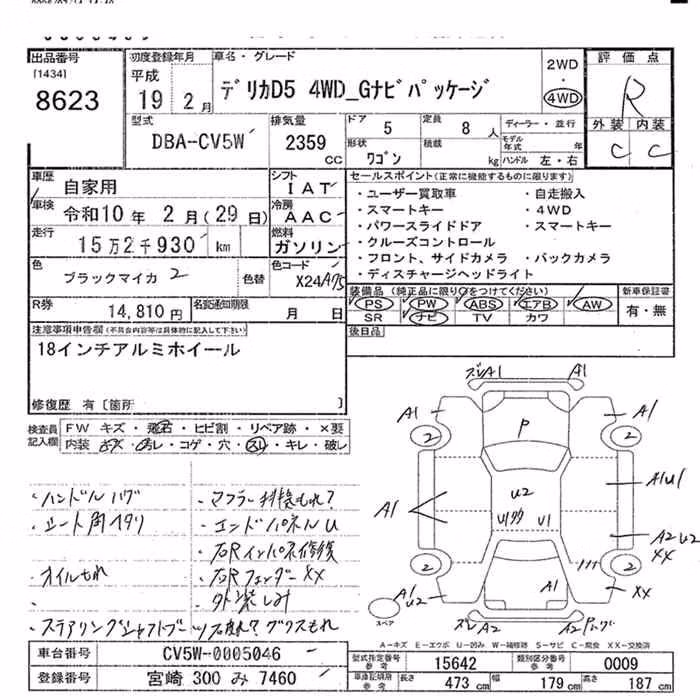 出品番号
[1434]
8623
初度登録年月
平成
19 2月
車名・グレード
デリカD5 4WD_Gナビパッケージ
2WD
・
4WD
評価点
R
外装 内装
C C
型式
DBA-CV5W
排気量
2359
CC
ドア 5
定員 8 人
形状 ワゴン
積載 kg
ディーラー・並行
モデル年式 年
ハンドル 左・右
車歴 自家用
シフト IAT
車検 令和10年 2月(29日)
冷房 AAC
走行 15万2千930 km
燃料 ガソリン
色 ブラックマイカ 2
色替
色コード X24A75
R券 14,810円
名変通知期限 月 日
セールスポイント(正常に機能するものに限ります)
・ユーザー買取車 ・自走搬入
・スマートキー ・4WD
・パワースライドドア ・スマートキー
・クルーズコントロール
・フロント、サイドカメラ ・バックカメラ
・ディスチャージヘッドライト
装備品(純正品に限り○をつけてください)
PS PW ABS エアB AW
SR ナビ TV カワ
新車保証書
有・無
後日品
注意事項申告欄(不具合内容等は具体的に記入して下さい)
18インチアルミホイール
修復歴 有 [箇所 ]
検査員記入欄
FW キズ・飛石・ヒビ割・リペア跡・×要
内装 ・コゲ・穴・スレ・キレ・破レ
・ハンドルハゲ
・シート角ヘタリ
・オイルもれ
・マフラー排換もれ?
・エンドパネルU
・右Rインパネ修復
・右RフェンダーXX
・外装しみ
・ステアリングシャフトブーツ石擦れ?グリスもれ
ズレA1 A1
A1 A1
2 2
P
A1 U2 A1U1
U1 U1
A2 U2
XX
2 2
A1
U2
A1
XX
スペア
ズレ A2 A2
A-キズ E-エクボ U-凹み W-補修跡 S-サビ C-腐食 XX-交換済
車台番号 CV5W-0005046
登録番号 宮崎 300 み 7460
型式指定番号 参考 15642
類別区分番号 参考 0009
車庫証明用 参考 長さ 473 cm 幅 179 cm 高さ 187 cm